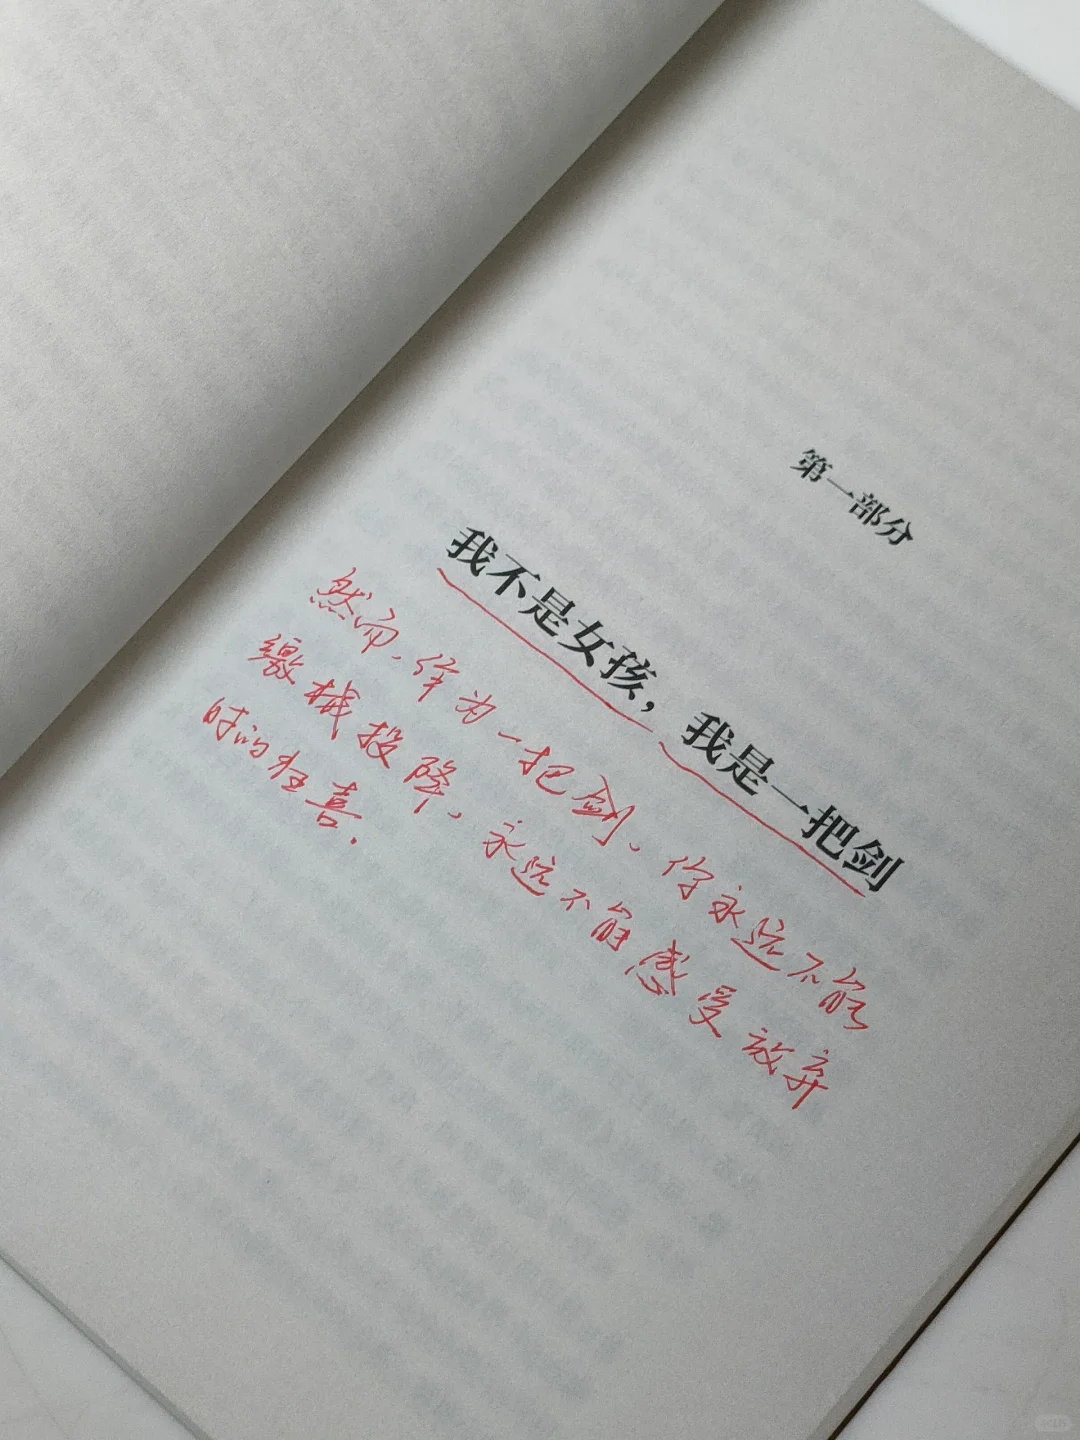 第一部分
我不是女孩，我是一把剑
然而，作为一把剑、你永远不能
缴械投降，永远不能感受放弃
时的狂喜．